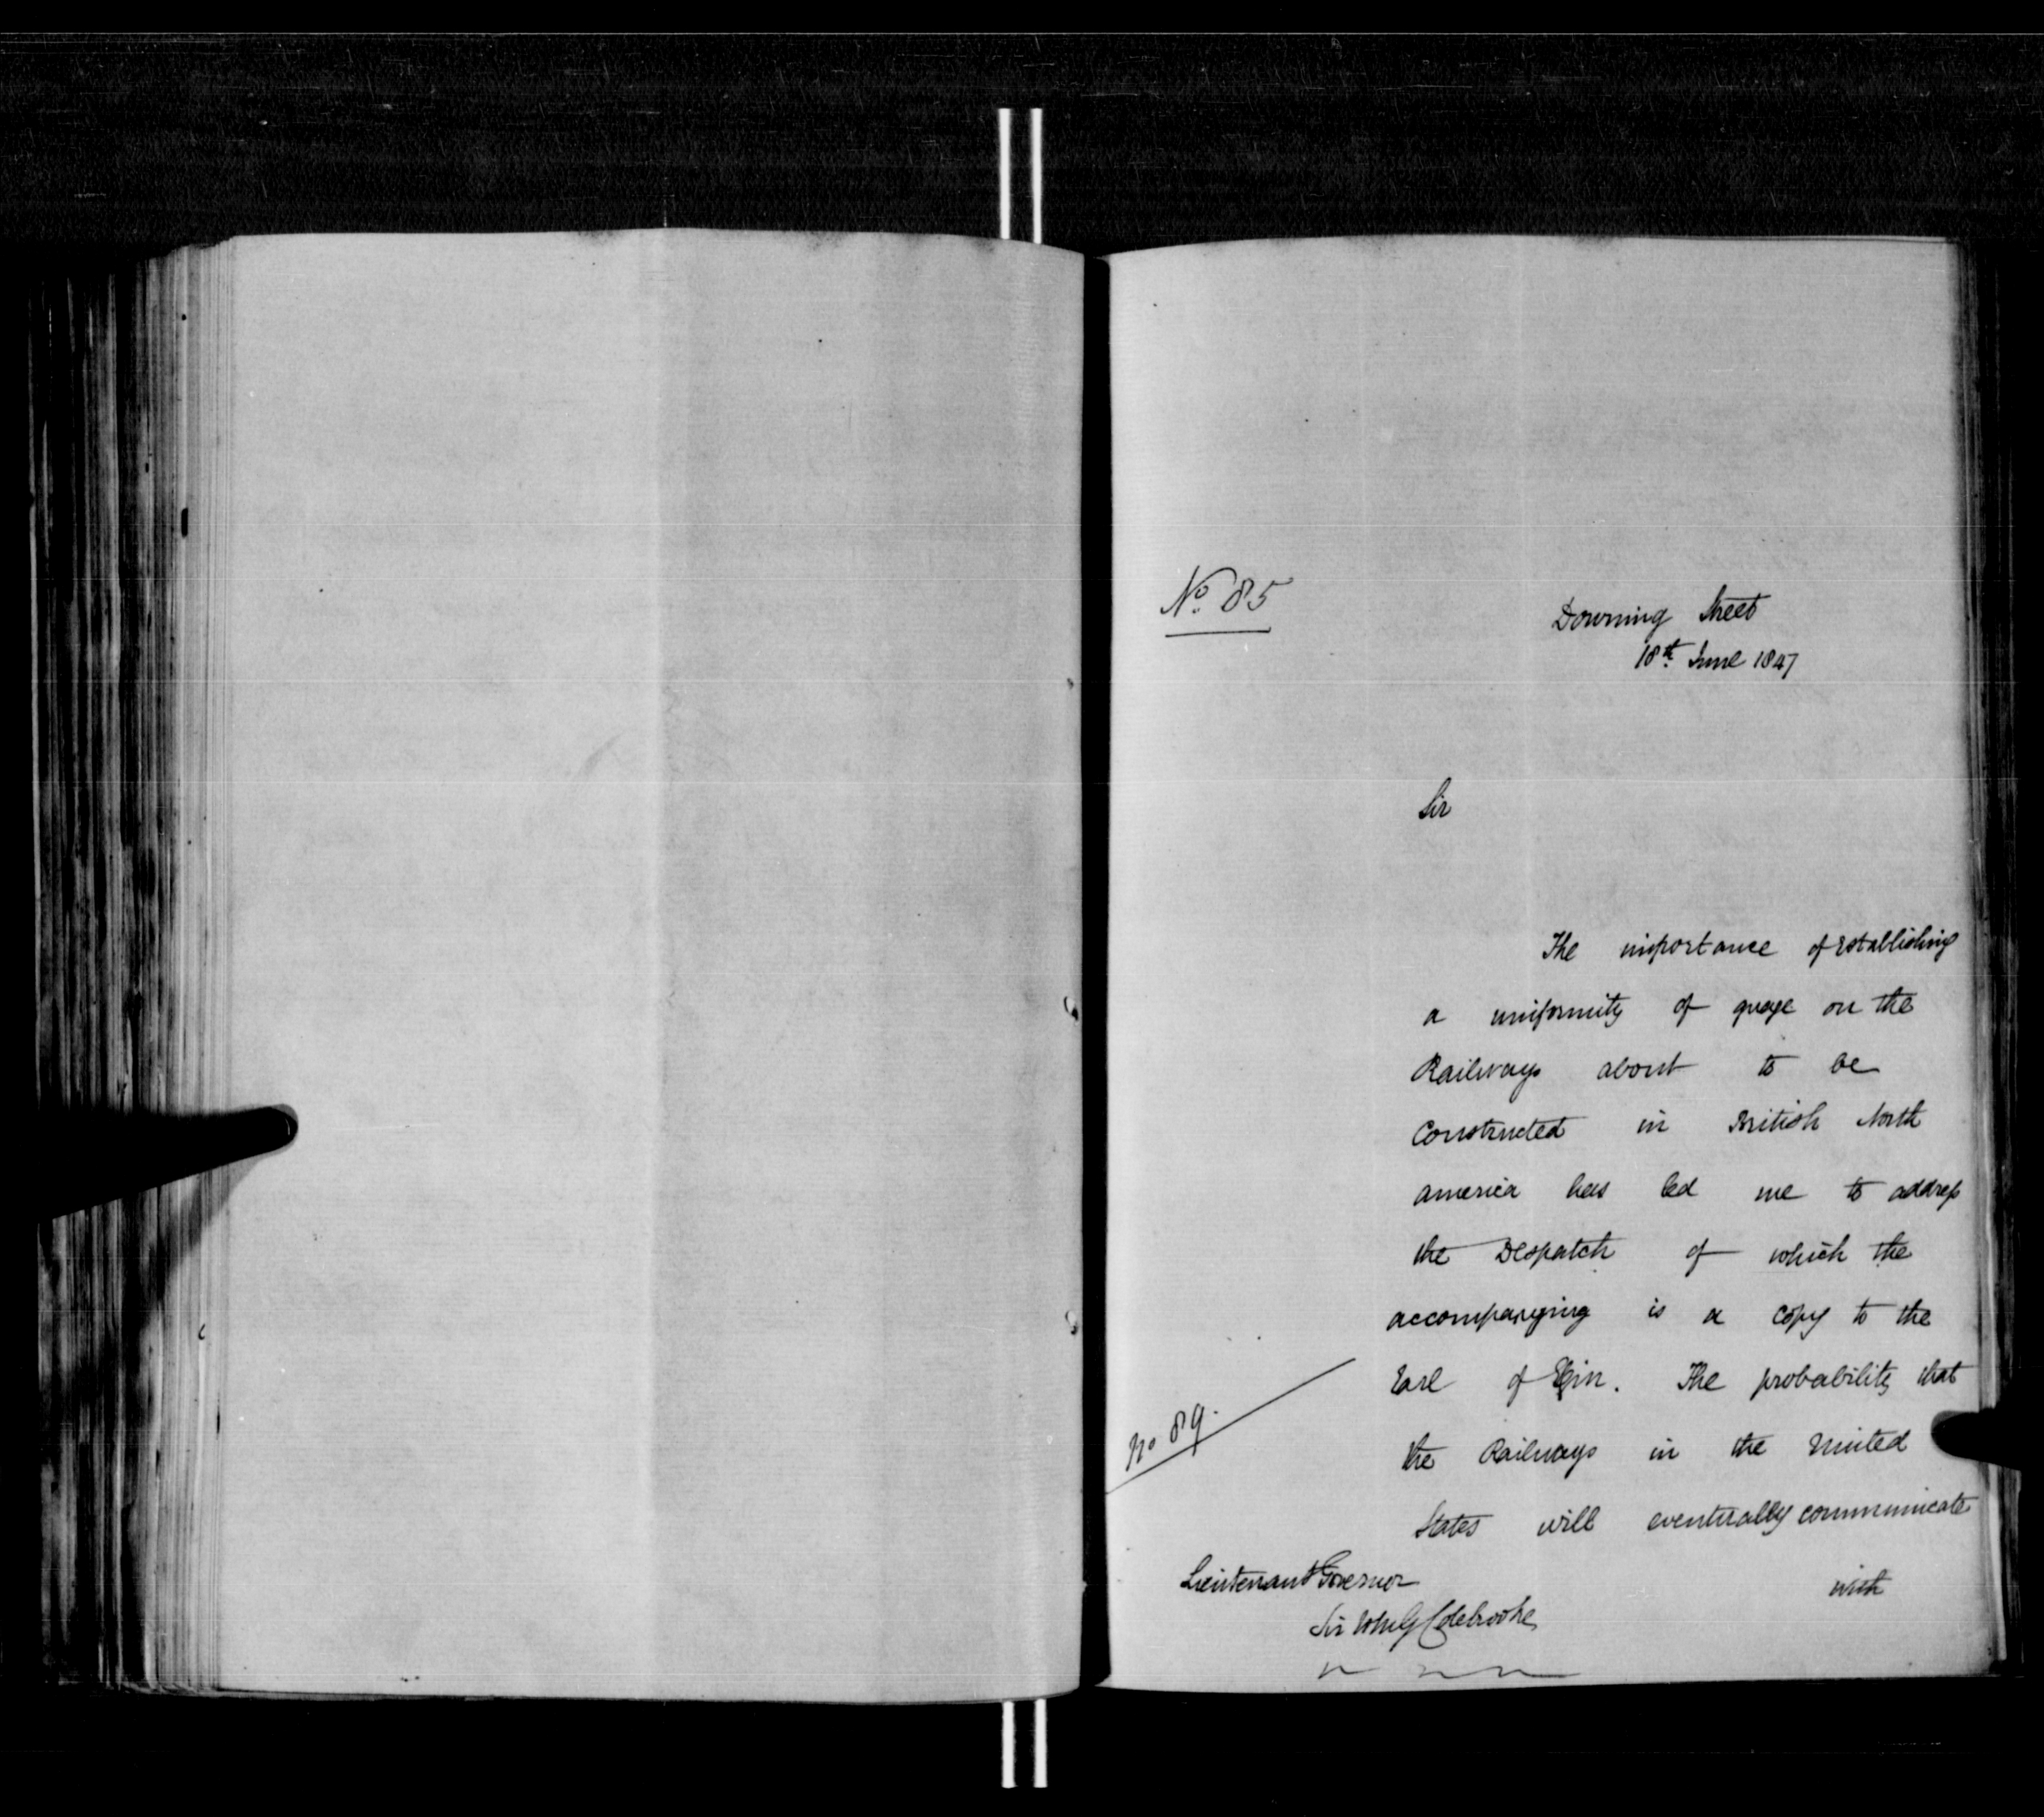 No. 85
Downing Street
18th June 1847
Sir
The importance of establishing
a uniformity of guage on the
Railways about to be
Constructed in British North
America has led me to address
the Despatch of which the
accompanying is a copy to the
Earl of Elgin. The probability that
No 89.
the Railways in the United
States will eventually communicate
with
Lieutenant Governor
Sir Wm G Colebrooke